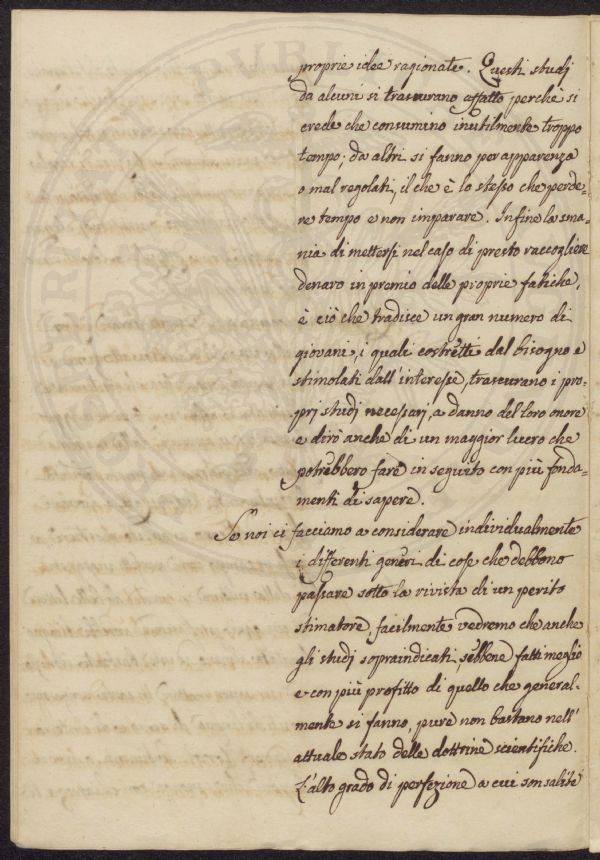 proprie idee ragionate. Questi studj
da alcuni si trascurano affatto perchè si
crede che consumino inutilmente troppo
tempo; da altri si fanno per apparenza
o mal regolati, il che è lo stesso che perde-
re tempo e non imparare. Infine la sma-
nia di mettersi nel caso di presto raccogliere
denaro in premio delle proprie fatiche,
è ciò che tradisce un gran numero di
giovani, i quali costretti dal bisogno e
stimolati dall'interesse, trascurano i pro-
prj studj necessarj, a danno del loro onore
e dirò anche di un maggior lucro che
potrebbero fare in seguito con più fonda-
menti di sapere.
Se noi ci facciamo a considerare individualmente
i differenti generi di cose che debbono
passare sotto la rivista di un perito
stimatore, facilmente vedremo che anche
gli studj sopraindicati, sebbene fatti meglio
e con più profitto di quello che general-
mente si fanno, pure non bastano nell'
attuale stato delle dottrine scientifiche.
L'alto grado di perfezione a cui son salite